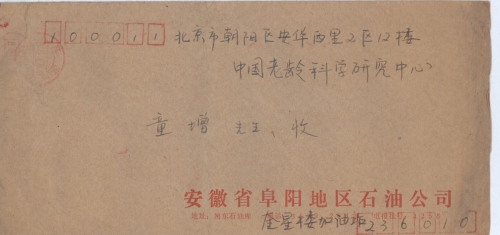 100011 北京市朝阳区安华西里2区12楼
中国老龄科学研究中心
童增 先生 收
安徽省阜阳地区石油公司
奎星楼加油站 236010